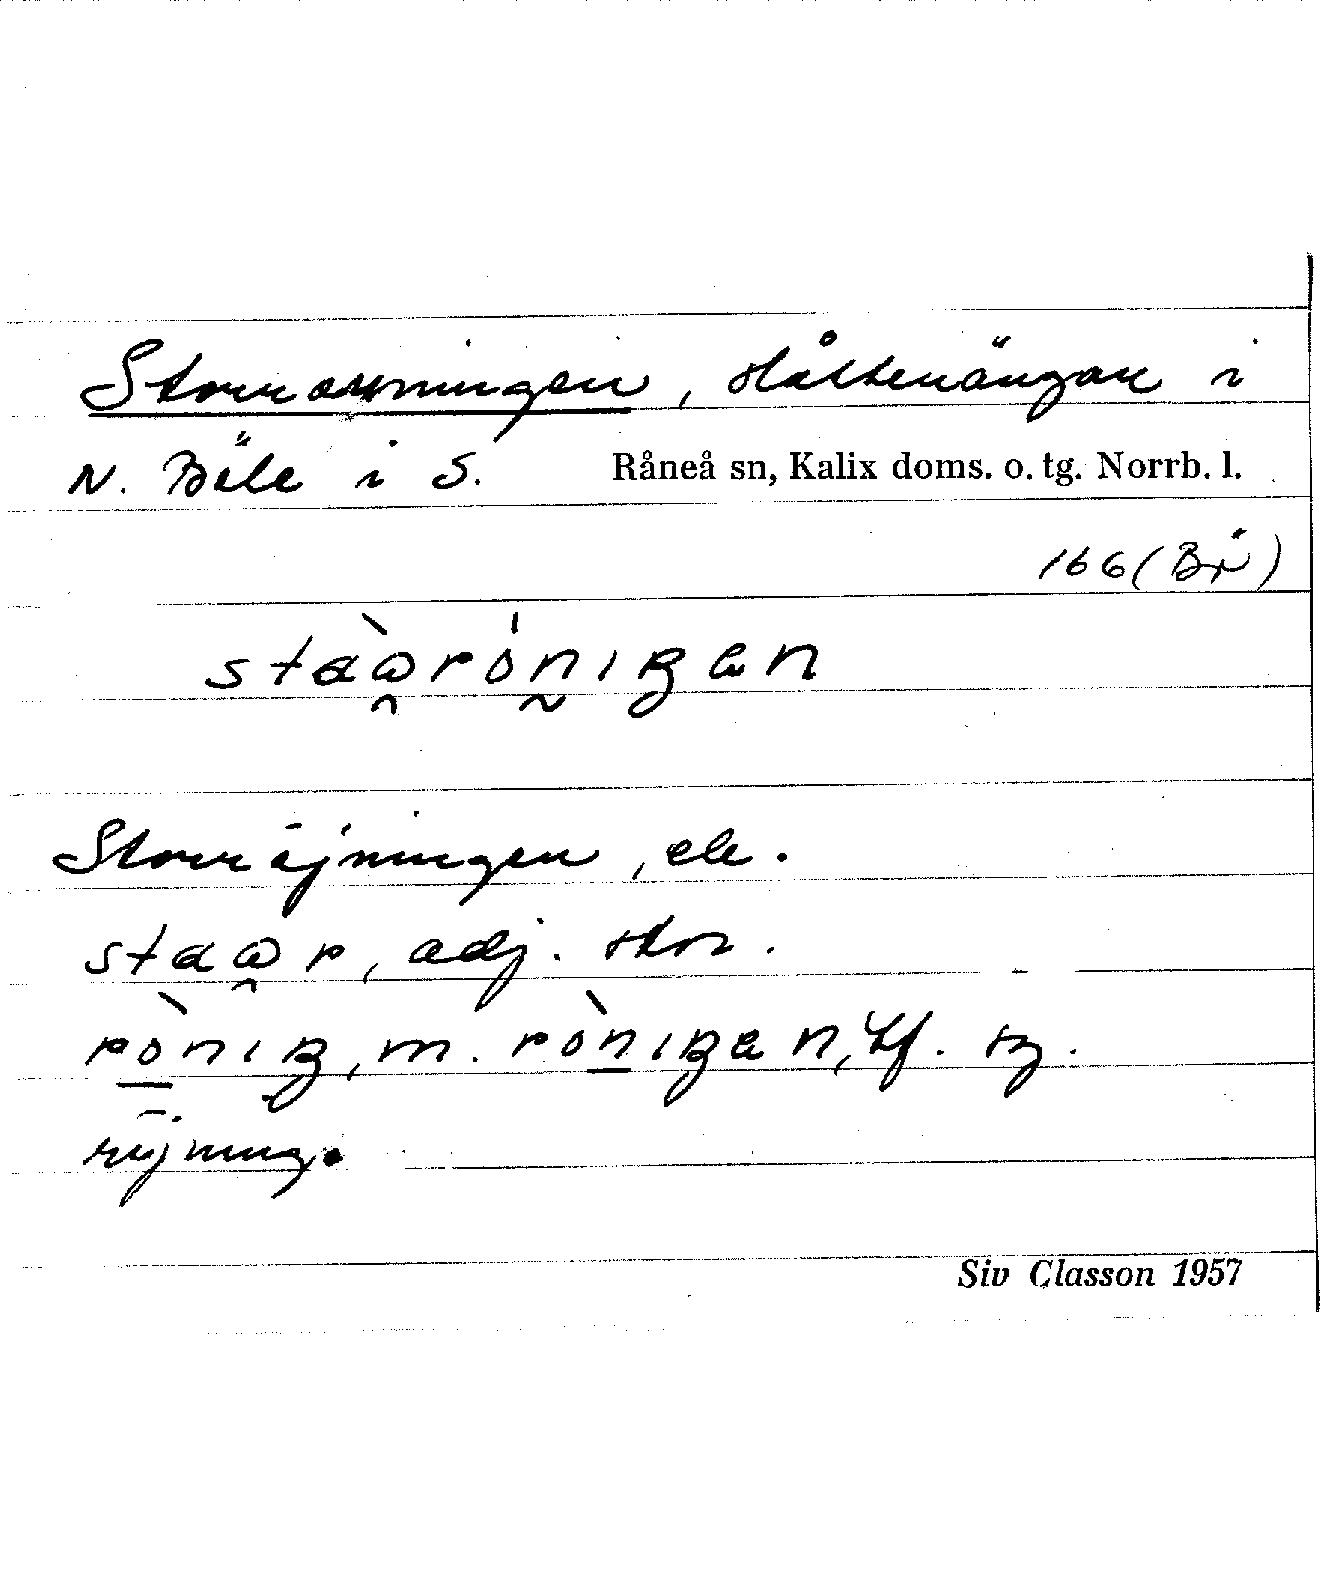 Storrönningen, slåttenängar i
N. Böle i S. Råneå sn, Kalix doms. o. tg. Norrb. l.
166 (Bä)
staωrȯnıgan
Storröjningen, ele.
staωr, adj. stor.
rònıŋ, m. rònıŋan, bf. sg.
röjning.
Siv Classon 1957